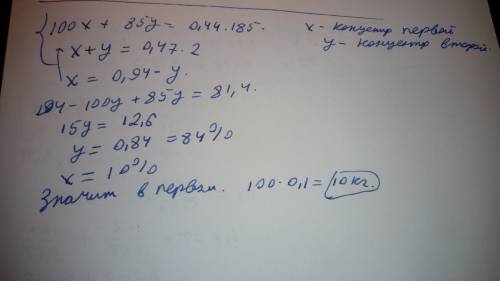 100x + 85y = 0,44·185.
x - концентр первой
x + y = 0,47·2
y - концентр второй.
x = 0,94 - y.
94 - 100y + 85y = 81,4.
15y = 12,6
y = 0,84 = 84%
x = 10%
Значит в первом. 100·0,1 = 10 кг.